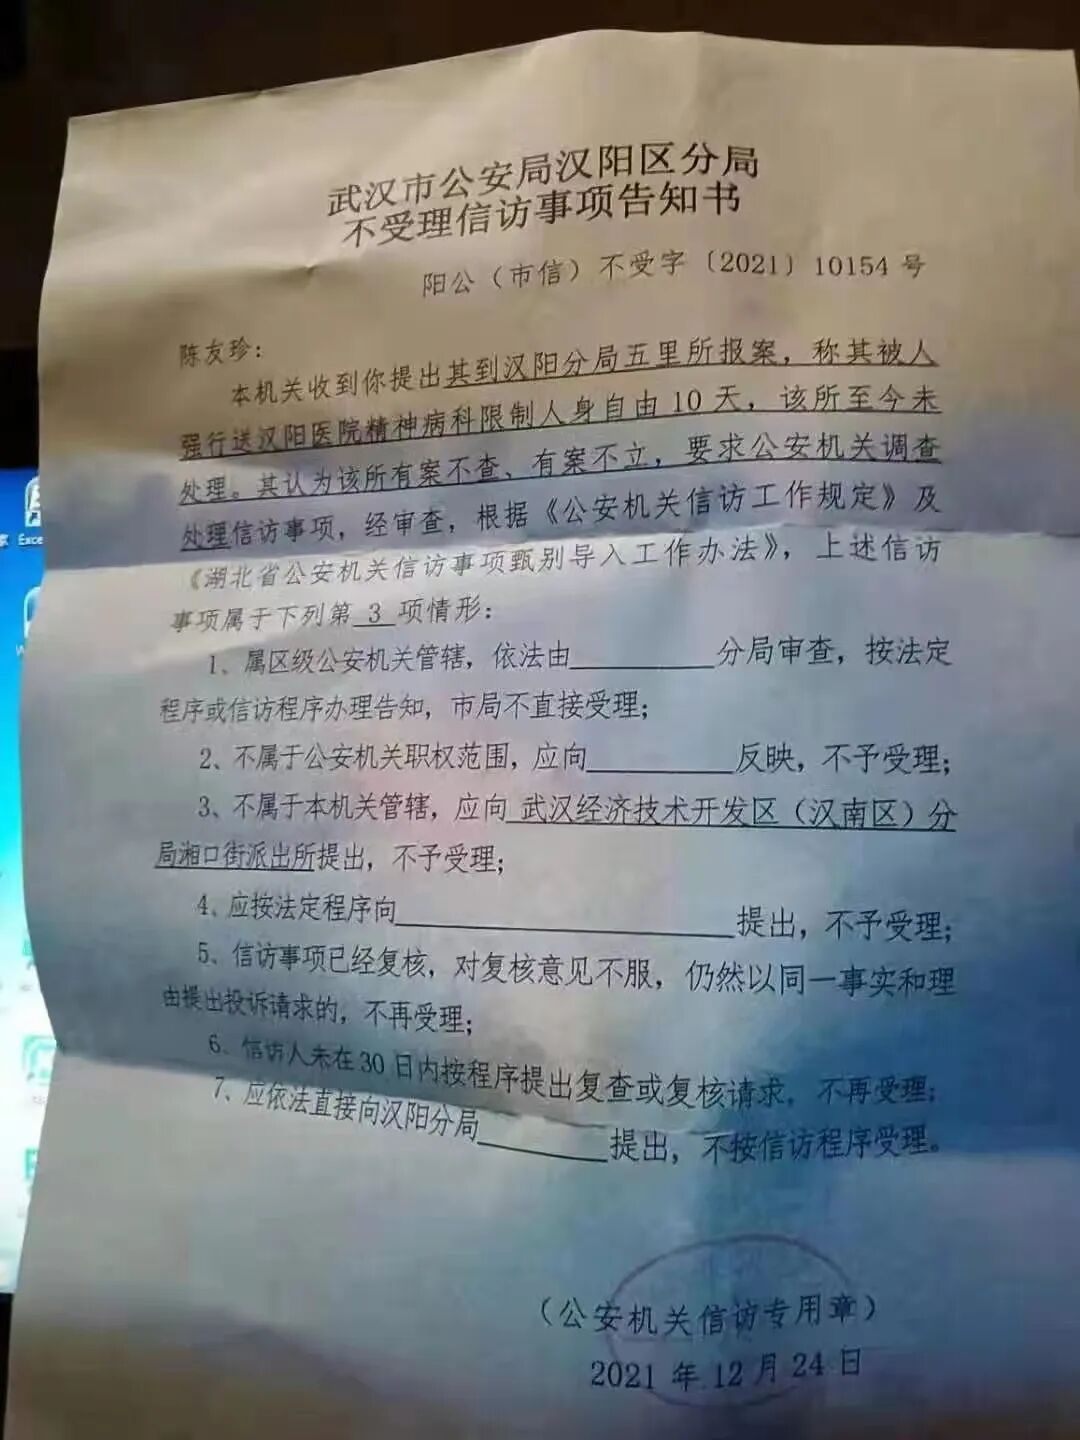 武汉市公安局汉阳区分局
不受理信访事项告知书
阳公（市信）不受字〔2021〕10154号
陈友珍：
本机关收到你提出其到汉阳分局五里所报案，称其被人
强行送汉阳医院精神病科限制人身自由10天，该所至今未
处理。其认为该所有案不查、有案不立，要求公安机关调查
处理信访事项，经审查，根据《公安机关信访工作规定》及
《湖北省公安机关信访事项甄别导入工作办法》，上述信访
事项属于下列第 3 项情形：
1、属区级公安机关管辖，依法由________分局审查，按法定
程序或信访程序办理告知，市局不直接受理；
2、不属于公安机关职权范围，应向________反映，不予受理；
3、不属于本机关管辖，应向 武汉经济技术开发区（汉南区）分
局湘口街派出所提出，不予受理；
4、应按法定程序向________________提出，不予受理；
5、信访事项已经复核，对复核意见不服，仍然以同一事实和理
由提出投诉请求的，不再受理；
6、信访人未在30日内按程序提出复查或复核请求，不再受理；
7、应依法直接向汉阳分局________提出，不按信访程序受理。
（公安机关信访专用章）
2021年12月24日
Exce